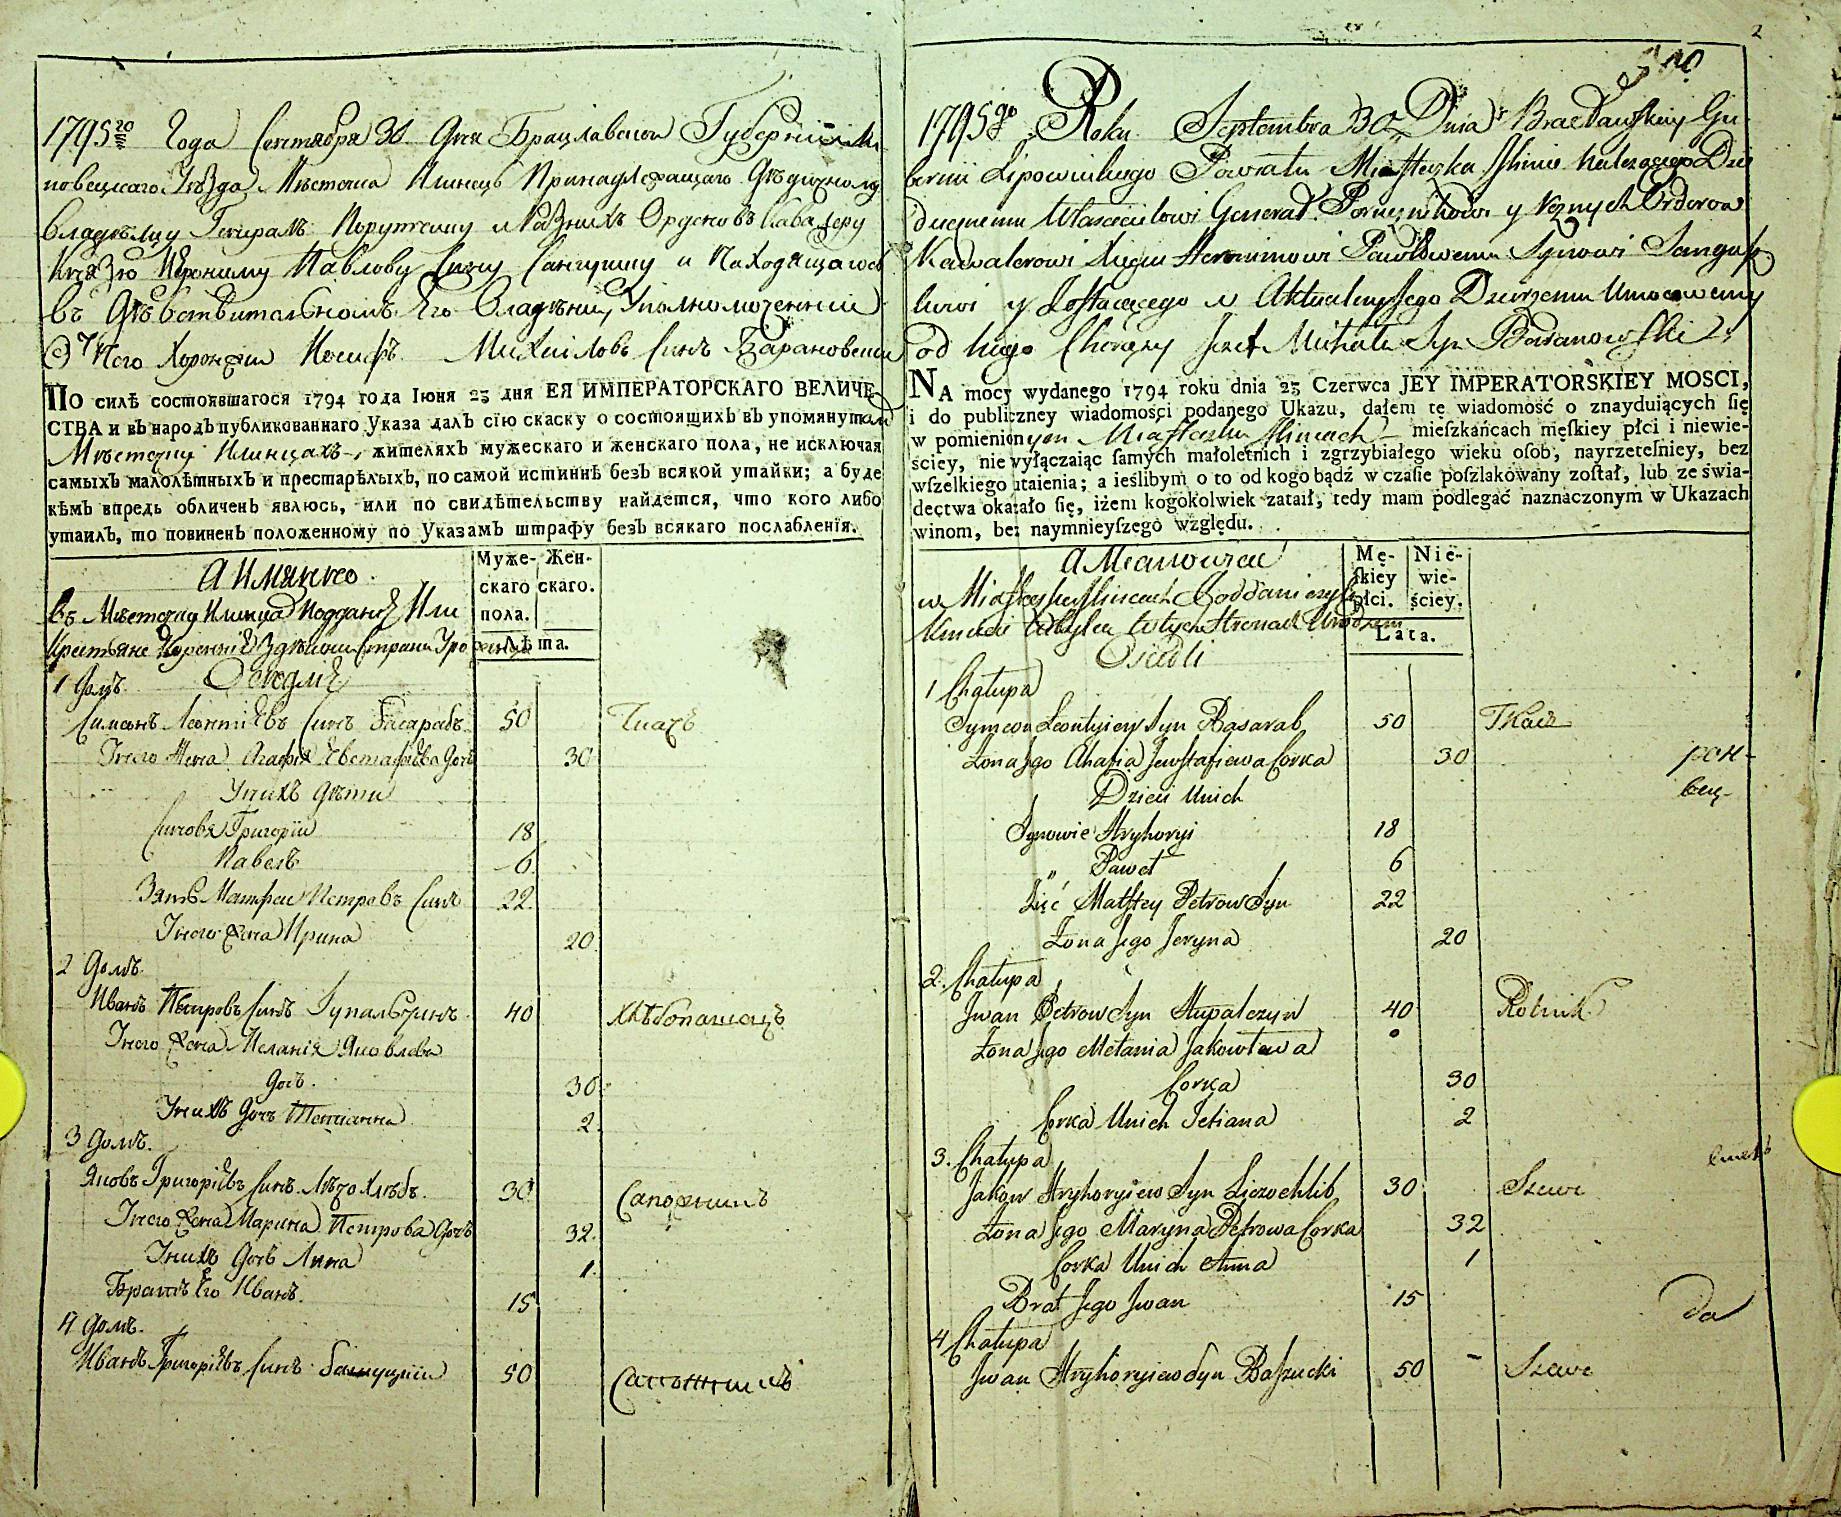 1795го Года Сентября 30 Дня Брацлавской Губернїи Ли
повецкаго Уѣзда Мѣстечка Илинецъ Принадлежащаго Дѣдичному
Владѣлцу Генералъ Порутчику и Разныхъ Орденовъ Кавалеру
Князю Иерониму Павлову Сыну Сангушку и Находящагось
въ Дѣйствительномъ Его Владѣнии, Уполномоченний
От Него Хоронжии Иосифъ Михайловъ Синъ Барановский
По силѣ состоявшагося 1794 года Іюня 23 дня ЕЯ ИМПЕРАТОРСКАГО ВЕЛИЧЕ-
СТВА и въ народъ публикованнаго Указа далъ сїю скаску о состоящихъ въ упомянутом
Мѣстечку Илинцахъ, жителяхъ мужескаго и женскаго пола, не исключая
самыхъ малолѣтныхъ и престарѣлыхъ, по самой истиннѣ безъ всякой утайки; а буде
кѣмъ впредь обличенъ явлюсь, или по свидѣтельству найдется, что кого либо
утаилъ, то повиненъ положенному по Указамъ штрафу безъ всякаго послабленїя.
А Имянно
Муже- Жен-
скаго скаго.
пола.
Лѣта.
въ Мѣстечку Илинцах Поддание Или
Крестьяне
1 Домъ.
Симеонъ Леонтїевъ Синъ Басарабъ 50 Ткачъ
Унего Жена Агафия Евстафїева Дочь 30
Унихъ Дѣти
Синовя Григорїи 18
Павелъ 6
Зять Матфеи Петровъ Синъ 22
Унего Жена Ирина 20
2 Домъ.
Иванъ Петровъ Синъ Гупальчинъ 40 Хлѣбопашецъ
Унего Жена Меланїя Яковлева
Дочь. 30
Унихъ Дочь Тетианна 2
3 Домъ.
Яковъ Григорїевъ Синъ Лѣзохлѣбъ. 30 Сапожникъ
Унего Жена Марина Петрова Дочь 32
Унихъ Дочь Анна 1
Братъ Его Иванъ. 15
4 Домъ.
Иванъ Григорїевъ Синъ Башуцкїи 50 Сапожникъ
2
1795go Roku Septembra 30 Dnia Bracławskiey Gu
bernii Lipowieckiego Powiatu Miasteczka Iliniec należącego Dzie
dzicznemu Włascicielowi Generał Porucznikowi y Roznych Orderow
Kawalerowi Xięciu Heronimowi Pawłowemu Synowi Sangusz
kowi y Zostającego w Aktualnym Jego Dzierzeniu Umocowany
od Niego Chorąży Jozef Michała Syn Baranowski
NA mocy wydanego 1794 roku dnia 23 Czerwca JEY IMPERATORSKIEY MOSCI,
i do publiczney wiadomości podanego Ukazu, dałem tę wiadomość o znayduiących ſię
w pomienionym Miasteczku Ilincach mieſzkańcach męſkiey płci i niewie-
ściey, nie wyłączaiąc ſamych małoletnich i zgrzybiałego wieku osob, nayrzeteſniey, bez
wſzelkiego utaienia; a ieślibym o to od kogo bądź w czaſie poſzlakowany został, lub ze świa-
dectwa okazało się, iżem kogokolwiek zataił, tedy mam podlegać naznaczonym w Ukazach
winom, bez naymnieyſzego względu.
A Mianowicie
Mę- Nie-
ſkiey wie-
płci. ściey.
Lata.
w Miasteczku Ilincach Poddani czyli
Osiedli
1 Chałupa
Symeon Leontyiew Syn Basarab 50 Tkacz
Zona Jego Ahafia Jewstafiewa Corka 30
Dzieci Unich
Synowie Hryhoryi 18
„ Paweł 6
Zięć Matftey Petrow Syn 22
Żona Jego Jeryna 20
2. Chałupa
Jwan Petrow Syn Hupalczyn 40 Rolnik
Żona Jego Mełania Jakowlewa
Corka 30
Corka Unich Tetiana 2
3. Chałupa
Jakow Hryhoryiew Syn Liezochlib 30 Szewc
Żona Jego Maryna Petrowa Corka 32
Corka Unich Anna 1
Brat Jego Jwan 15
4 Chałupa
Jwan Hryhoryiew Syn Baszucki 50 Szewc